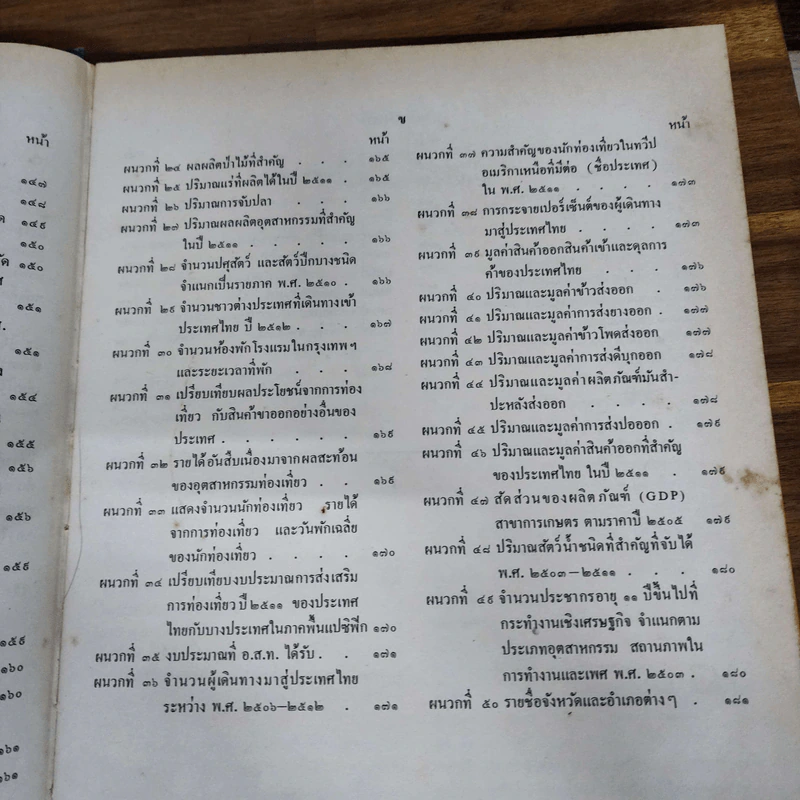 หน้า
๑๔๗
๑๔๘
๑๔๙
๑๕๐
๑๕๐
๑๕๑
๑๕๑
๑๕๔
๑๕๕
๑๕๖
๑๕๖
๑๕๙
๑๕๙
๑๖๐
๑๖๐
๑๖๑
๑๖๑
ข
หน้า
ผนวกที่ ๒๔ ผลผลิตป่าไม้ที่สำคัญ . . . ๑๖๕
ผนวกที่ ๒๕ ปริมาณแร่ที่ผลิตได้ในปี ๒๕๑๑ . ๑๖๕
ผนวกที่ ๒๖ ปริมาณการจับปลา . . . ๑๖๖
ผนวกที่ ๒๗ ปริมาณผลผลิตอุตสาหกรรมที่สำคัญ
ในปี ๒๕๑๑ . . . . . ๑๖๖
ผนวกที่ ๒๘ จำนวนปศุสัตว์ และสัตว์ปีกบางชนิด
จำแนกเป็นรายภาค พ.ศ. ๒๕๑๐ . ๑๖๖
ผนวกที่ ๒๙ จำนวนชาวต่างประเทศที่เดินทางเข้า
ประเทศไทย ปี ๒๕๑๒ . . . ๑๖๗
ผนวกที่ ๓๐ จำนวนห้องพักโรงแรมในกรุงเทพฯ
และระยะเวลาที่พัก . . . ๑๖๘
ผนวกที่ ๓๑ เปรียบเทียบผลประโยชน์จากการท่อง
เที่ยว กับสินค้าขาออกอย่างอื่นของ
ประเทศ . . . . . . ๑๖๙
ผนวกที่ ๓๒ รายได้อันสืบเนื่องมาจากผลสะท้อน
ของอุตสาหกรรมท่องเที่ยว . . ๑๖๙
ผนวกที่ ๓๓ แสดงจำนวนนักท่องเที่ยว รายได้
จากการท่องเที่ยว และวันพักเฉลี่ย
ของนักท่องเที่ยว . . . . ๑๗๐
ผนวกที่ ๓๔ เปรียบเทียบงบประมาณการส่งเสริม
การท่องเที่ยวปี ๒๕๑๑ ของประเทศ
ไทยกับบางประเทศในภาคพื้นแปซิฟิก ๑๗๐
ผนวกที่ ๓๕ งบประมาณที่ อ.ส.ท. ได้รับ . . ๑๗๑
ผนวกที่ ๓๖ จำนวนผู้เดินทางมาสู่ประเทศไทย
ระหว่าง พ.ศ. ๒๕๐๖–๒๕๑๒ . ๑๗๑
หน้า
ผนวกที่ ๓๗ ความสำคัญของนักท่องเที่ยวในทวีป
อเมริกาเหนือที่มีต่อ (ชื่อประเทศ)
ใน พ.ศ. ๒๕๑๑ . . . . ๑๗๓
ผนวกที่ ๓๘ การกระจายเปอร์เซ็นต์ของผู้เดินทาง
มาสู่ประเทศไทย . . . . ๑๗๓
ผนวกที่ ๓๙ มูลค่าสินค้าออกสินค้าเข้าและดุลการ
ค้าของประเทศไทย . . . ๑๗๖
ผนวกที่ ๔๐ ปริมาณและมูลค่าข้าวส่งออก . ๑๗๖
ผนวกที่ ๔๑ ปริมาณและมูลค่าการส่งยางออก . ๑๗๗
ผนวกที่ ๔๒ ปริมาณและมูลค่าข้าวโพดส่งออก ๑๗๗
ผนวกที่ ๔๓ ปริมาณและมูลค่าการส่งดีบุกออก ๑๗๘
ผนวกที่ ๔๔ ปริมาณและมูลค่าผลิตภัณฑ์มันสำ-
ปะหลังส่งออก . . . . ๑๗๘
ผนวกที่ ๔๕ ปริมาณและมูลค่าการส่งปอออก . ๑๗๙
ผนวกที่ ๔๖ ปริมาณและมูลค่าสินค้าออกที่สำคัญ
ของประเทศไทย ในปี ๒๕๑๑ . ๑๗๙
ผนวกที่ ๔๗ สัดส่วนของผลิตภัณฑ์ (GDP)
สาขาการเกษตร ตามราคาปี ๒๕๐๕ ๑๗๙
ผนวกที่ ๔๘ ปริมาณสัตว์น้ำชนิดที่สำคัญที่จับได้
พ.ศ. ๒๕๐๓–๒๕๑๑ . . . ๑๘๐
ผนวกที่ ๔๙ จำนวนประชากรอายุ ๑๑ ปีขึ้นไปที่
กระทำงานเชิงเศรษฐกิจ จำแนกตาม
ประเภทอุตสาหกรรม สถานภาพใน
การทำงานและเพศ พ.ศ. ๒๕๐๓ . ๑๘๐
ผนวกที่ ๕๐ รายชื่อจังหวัดและอำเภอต่างๆ . ๑๘๑